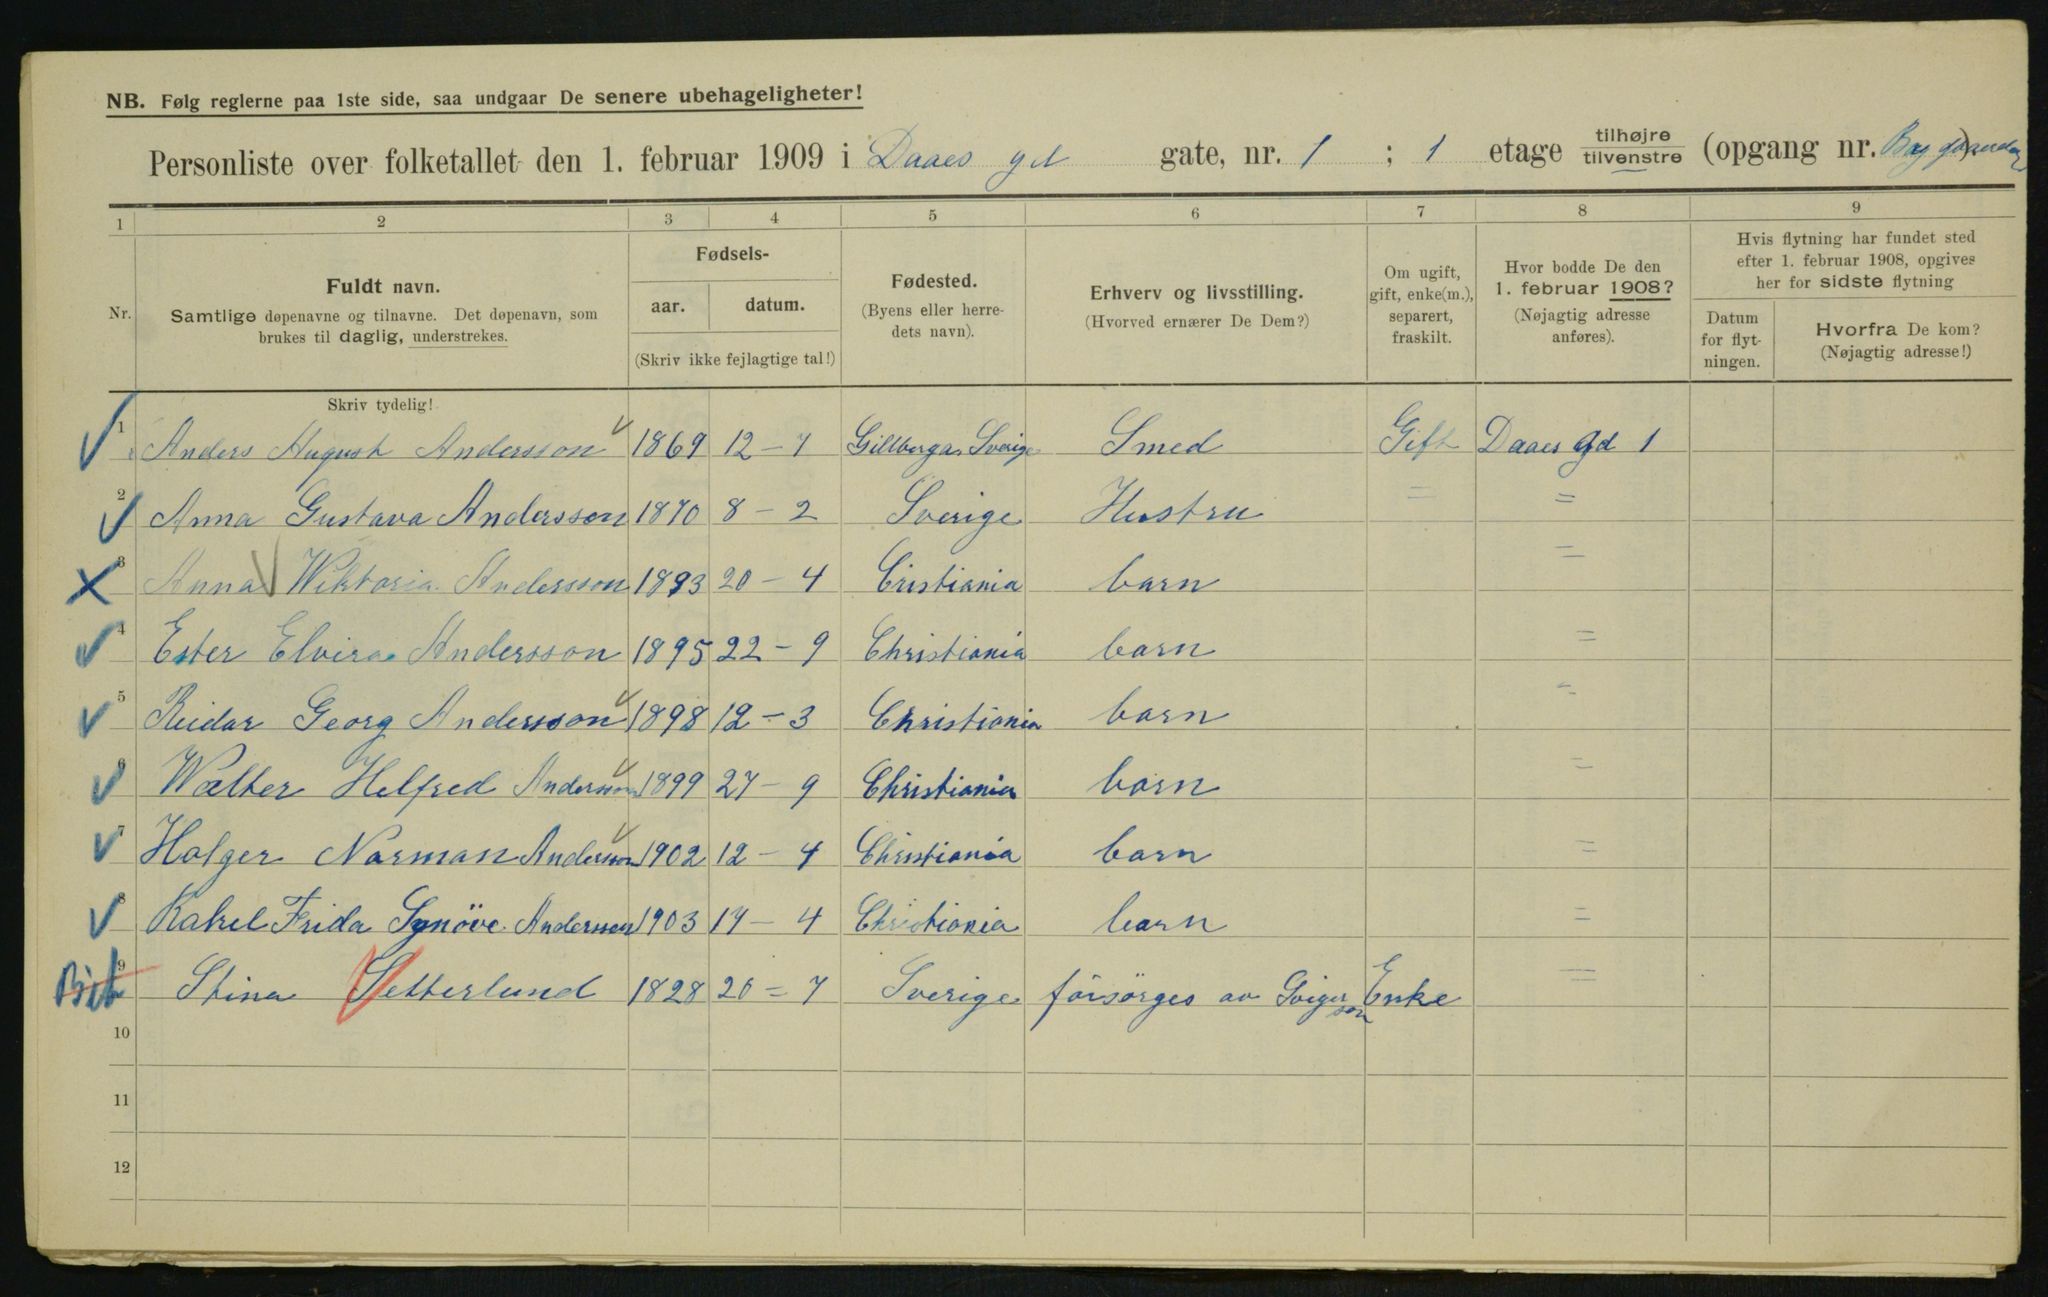 NB. Følg reglerne paa 1ste side, saa undgaar De senere ubehageligheter!
Personliste over folketallet den 1. februar 1909 i Daaes gd gate, nr. 1 ; 1 etage tilhøjre tilvenstre (opgang nr. Baggaarden)
1 2 3 4 5 6 7 8 9
Nr.
Fuldt navn.
Samtlige døpenavne og tilnavne. Det døpenavn, som
brukes til daglig, understrekes.
Fødsels-
aar. datum.
(Skriv ikke fejlagtige tal!)
Fødested.
(Byens eller herre-
dets navn).
Erhverv og livsstilling.
(Hvorved ernærer De Dem?)
Om ugift,
gift, enke(m.),
separert,
fraskilt.
Hvor bodde De den
1. februar 1908?
(Nøjagtig adresse
anføres).
Hvis flytning har fundet sted
efter 1. februar 1908, opgives
her for sidste flytning
Datum
for flyt-
ningen.
Hvorfra De kom?
(Nøjagtig adresse!)
Skriv tydelig!
1 Anders August Andersson 1869 12-7 Gillberga Sverige Smed Gift Daaes gd 1
2 Anna Gustava Andersson 1870 8-2 Sverige Hustru = =
3 Anna Wiktoria Andersson 1893 20-4 Cristiania barn =
4 Ester Elvira Andersson 1895 22-9 Christiania barn =
5 Reidar Georg Andersson 1898 12-3 Christiania barn =
6 Walter Helfred Andersson 1899 27-9 Christiania barn =
7 Holger Norman Andersson 1902 12-4 Christiania barn =
8 Rakel Frida Synöve Andersson 1903 17-4 Christiania barn =
Bib 9 Stina Setterlund 1828 20=7 Sverige försörges av Sviger son Enke =
10
11
12